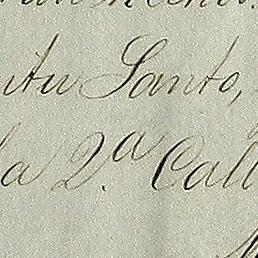 itu Santo,
la 2.ª Call